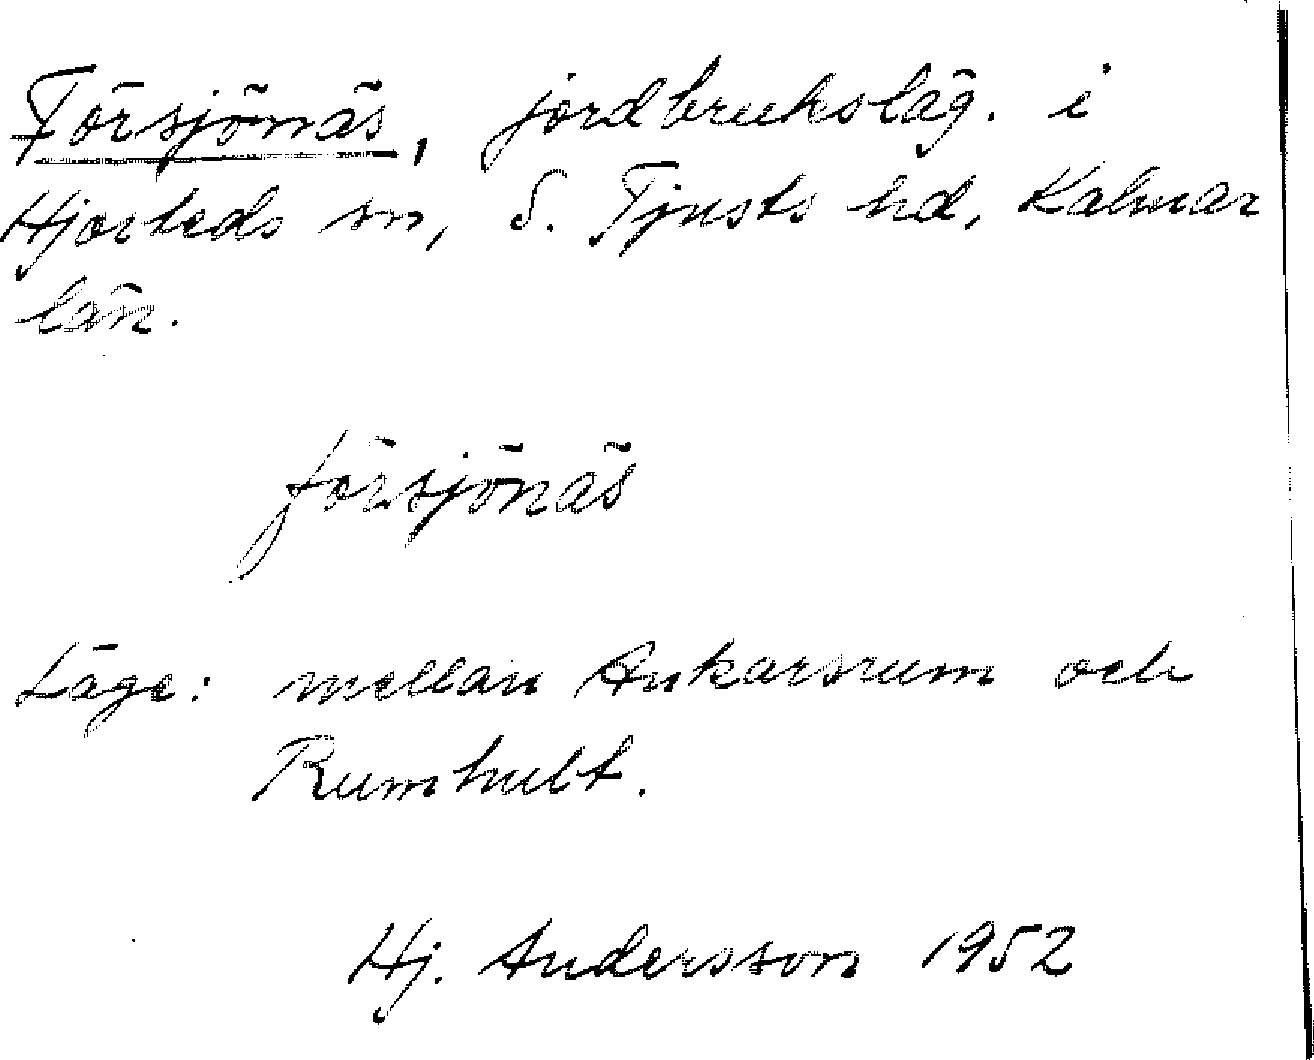 Försjönäs, jordbruksläg. i
Hjorteds sn, S. Tjusts hd, Kalmar
län.
försjönäs
Läge: mellan Ankarsrum och
Rumhult.
Hj. Andersson 1952